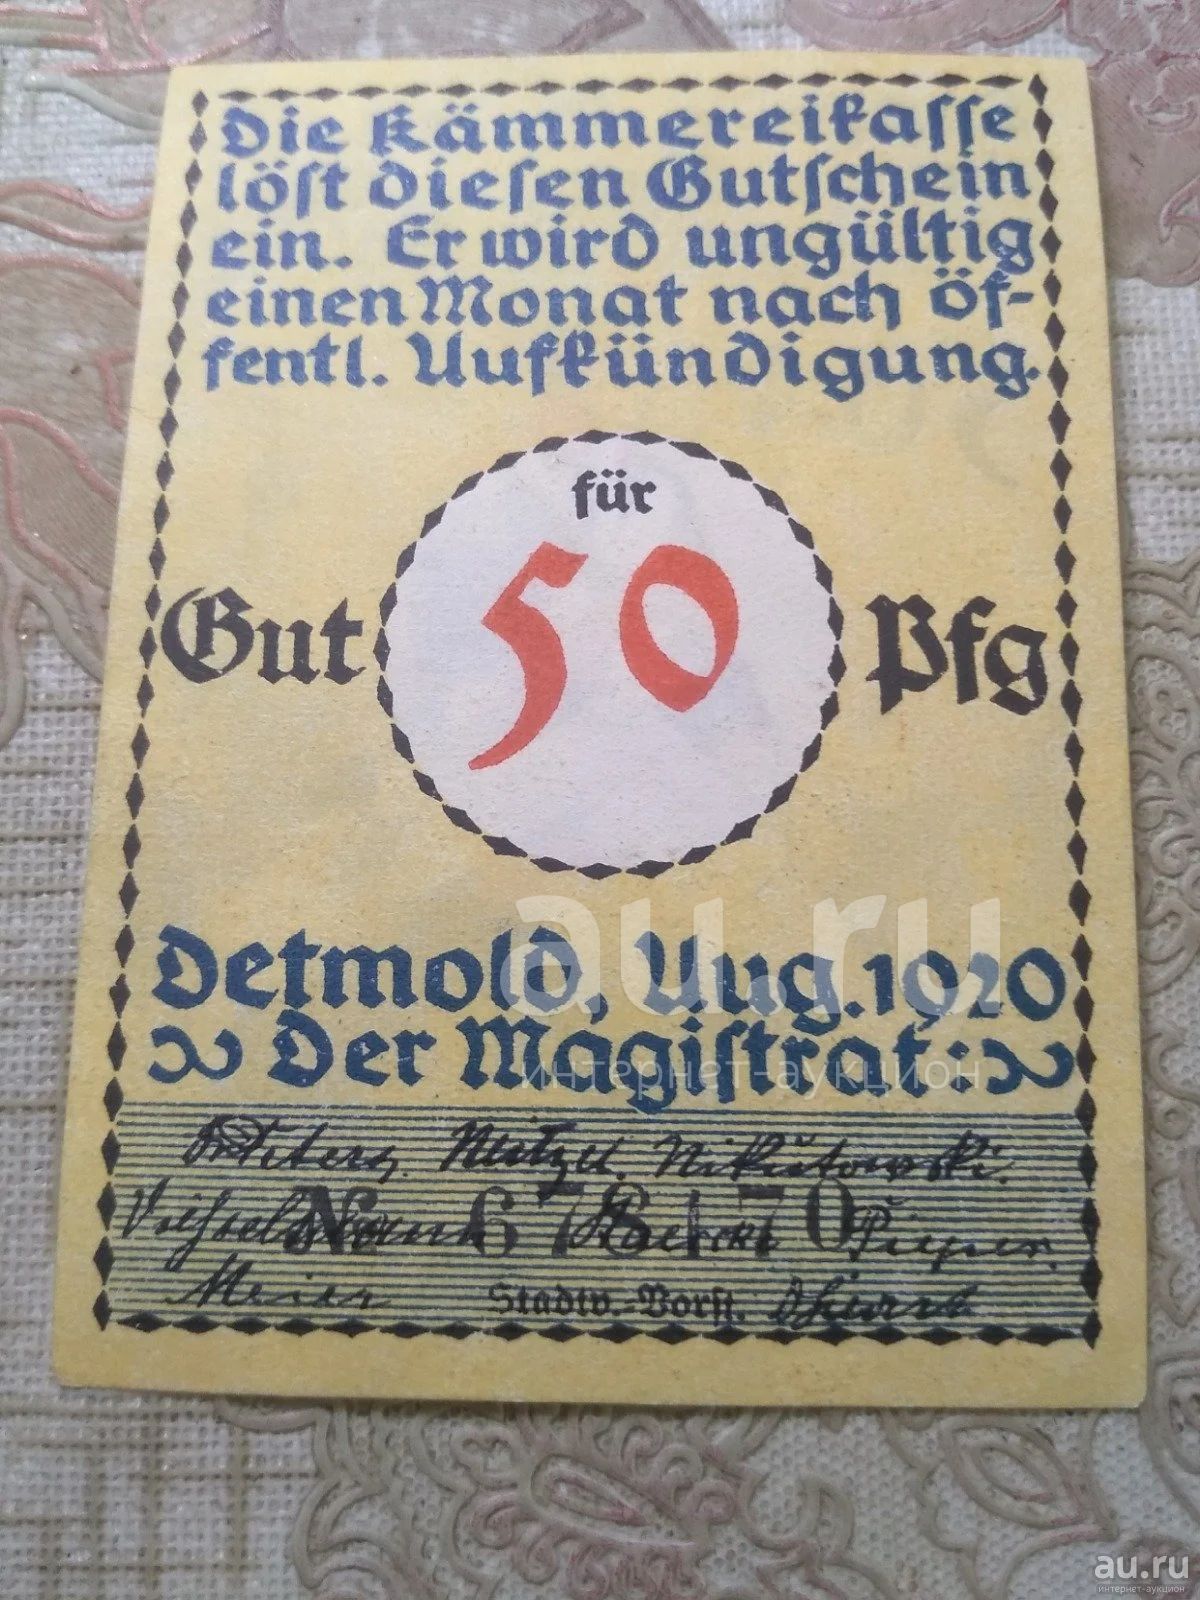 Die Kämmereikasse
löst diesen Gutschein
ein. Er wird ungültig
einen Monat nach öf-
fentl. Aufkündigung.
für
Gut 50 Pfg
Detmold, Aug. 1920
Der Magistrat:
Dr Peters. Neitzel. Nikutowski.
No
Meier Stadtv.-Vorst.
au.ru
интернет-аукцион
au.ru
интернет-аукцион